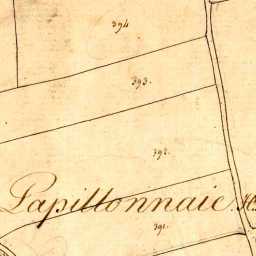 394
393.
392.
Lapillonnaie
391.